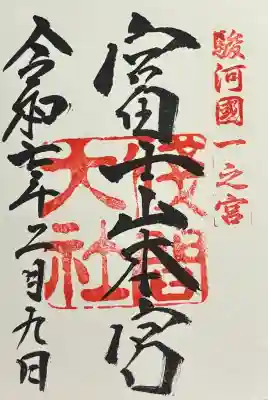 駿河國一之宮
富士山本宮
淺間
大社
令和七年二月九日